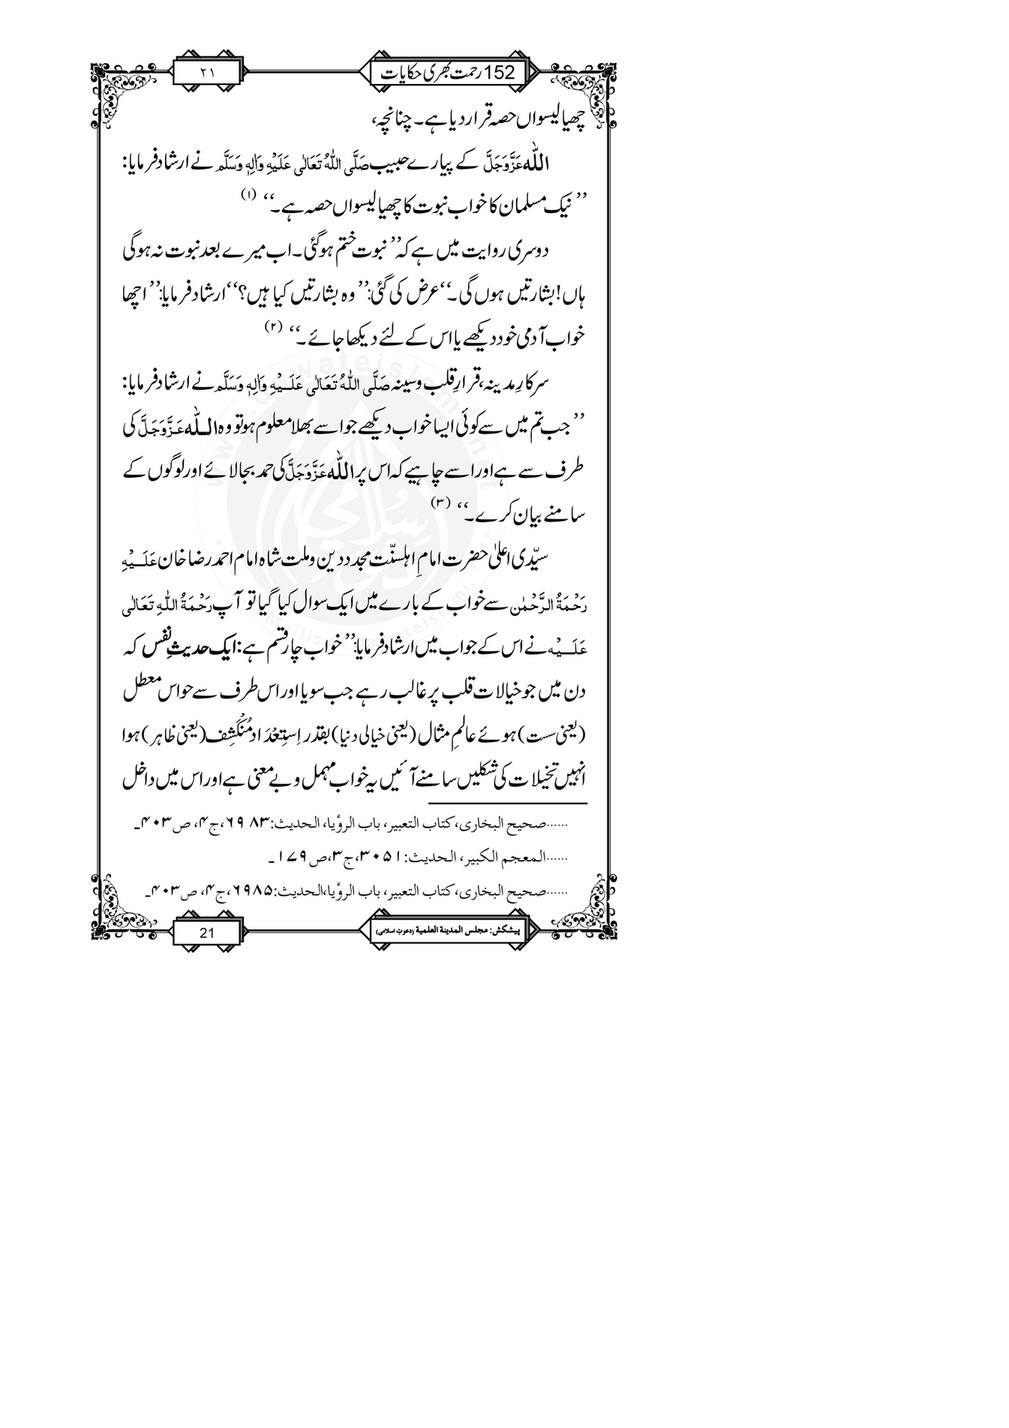 152 رحمت بھری حکایات
۲۱
چھیالیسواں حصہ قرار دیا ہے۔ چنانچہ،
اللّٰہ عَزَّوَجَلَّ کے پیارے حبیب صَلَّی اللّٰہُ تَعَالٰی عَلَیْہِ وَاٰلِہٖ وَسَلَّم نے ارشاد فرمایا:
’’ نیک مسلمان کا خواب نبوت کا چھیالیسواں حصہ ہے۔‘‘ (۱)
دوسری روایت میں ہے کہ ’’ نبوت ختم ہوگئی۔ اب میرے بعد نبوت نہ ہوگی
ہاں! بشارتیں ہوں گی۔‘‘ عرض کی گئی: ’’ وہ بشارتیں کیا ہیں؟‘‘ ارشاد فرمایا: ’’ اچھا
خواب آدمی خود دیکھے یا اس کے لئے دیکھا جائے۔‘‘ (۲)
سرکارِ مدینہ، قرارِ قلب وسینہ صَلَّی اللّٰہُ تَعَالٰی عَلَـیْہِ وَاٰلِہٖ وَسَلَّم نے ارشاد فرمایا:
’’ جب تم میں سے کوئی ایسا خواب دیکھے جو اسے بھلا معلوم ہو تو وہ اللّٰہ عَزَّوَجَلَّ کی
طرف سے ہے اور اسے چاہیے کہ اس پر اللّٰہ عَزَّوَجَلَّ کی حمد بجا لائے اور لوگوں کے
سامنے بیان کرے۔‘‘ (۳)
سیّدی اعلیٰ حضرت امامِ اہلسنّت مجدد دین وملت شاہ امام احمد رضا خان عَلَـیْہِ
رَحْمَۃُ الرَّحْمٰن سے خواب کے بارے میں ایک سوال کیا گیا تو آپ رَحْمَۃُ اللّٰہِ تَعَالٰی
عَلَـیْہ نے اس کے جواب میں ارشاد فرمایا: ’’ خواب چار قسم ہے: ایک حدیثِ نفس کہ
دن میں جو خیالات قلب پر غالب رہے جب سویا اور اس طرف سے حواس معطل
(یعنی سست) ہوئے عالمِ مثال (یعنی خیالی دنیا) بقدر اِستِعْدَاد مُنْکَشِف (یعنی ظاہر) ہوا
انہیں تخیلات کی شکلیں سامنے آئیں یہ خواب مہمل وبے معنی ہے اور اس میں داخل
......صحیح البخاری، کتاب التعبیر، باب الرؤیا، الحدیث: ۶۹۸۳، ج۴، ص۴۰۳۔
......المعجم الکبیر، الحدیث: ۳۰۵۱، ج۳، ص۱۷۹۔
......صحیح البخاری، کتاب التعبیر، باب الرؤیا، الحدیث: ۶۹۸۵، ج۴، ص۴۰۳۔
پیشکش: مجلس المدینۃ العلمیۃ (دعوتِ اسلامی)
21